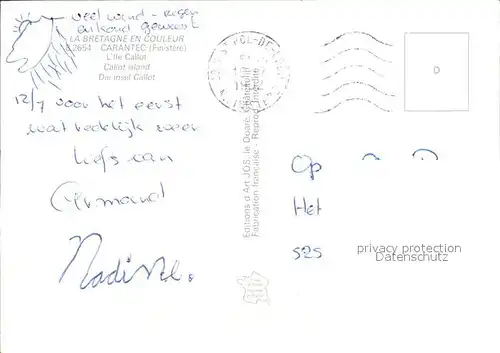 veel wind - regen
en koud geweest
LA BRETAGNE EN COULEUR
C 2654 CARANTEC (Finistère)
L'Ile Callot
Callot island
Die insel Callot
12/7 voor het eerst
wat redelijk weer
liefs van
Armand
Nadine.
Editions d'Art JOS. le Doaré, Châteaulin
Fabrication française - Reprod. interdite
Op
Het
525
privacy protection
Datenschutz